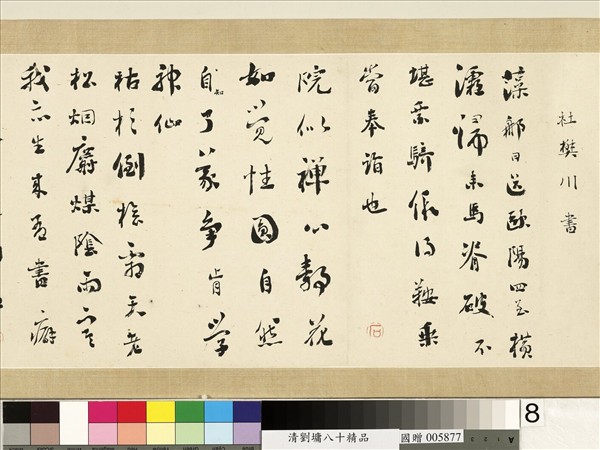 杜樊川書
日送歐陽四
灞歸來馬脊破不
堪乘騎 得鞍乘
嘗奉詣也
院似禪心靜花
如覺性圓自然
知了義爭肯學
神仙
枯杉倒檜霜天老
松烟麝煤陰雨寒
我亦生來有書癖
清劉墉八十精品
國贈 005877
8